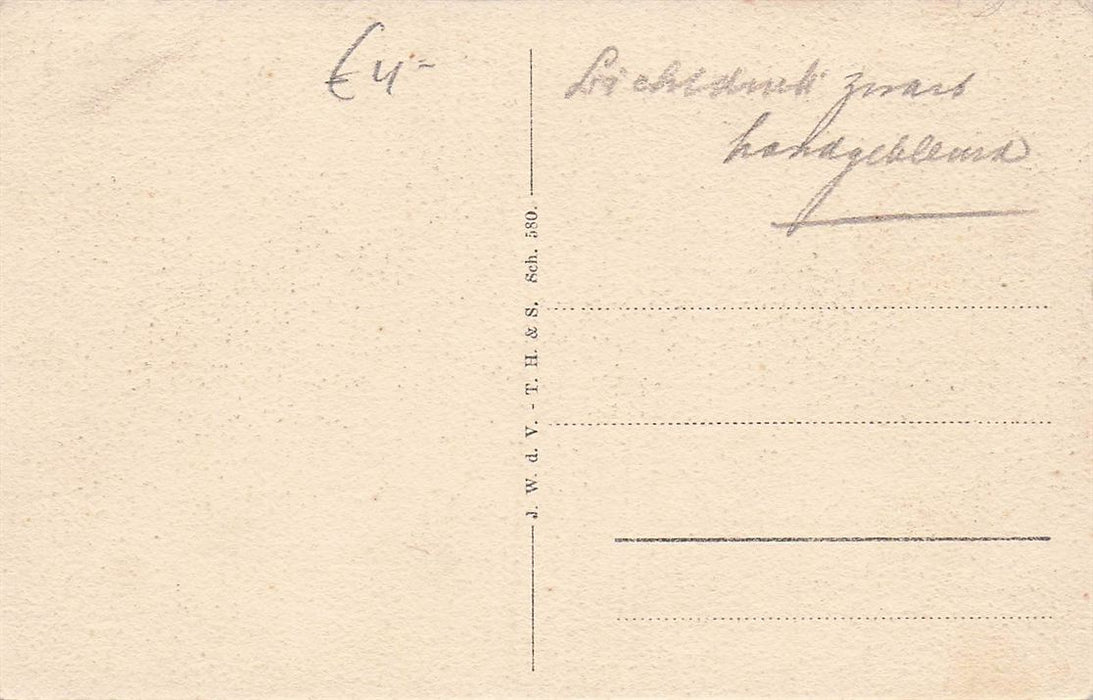 € 4-
Lichtdruk zwart
handgekleurd
J. W. d. V. - T. H. & S. Sch. 580.